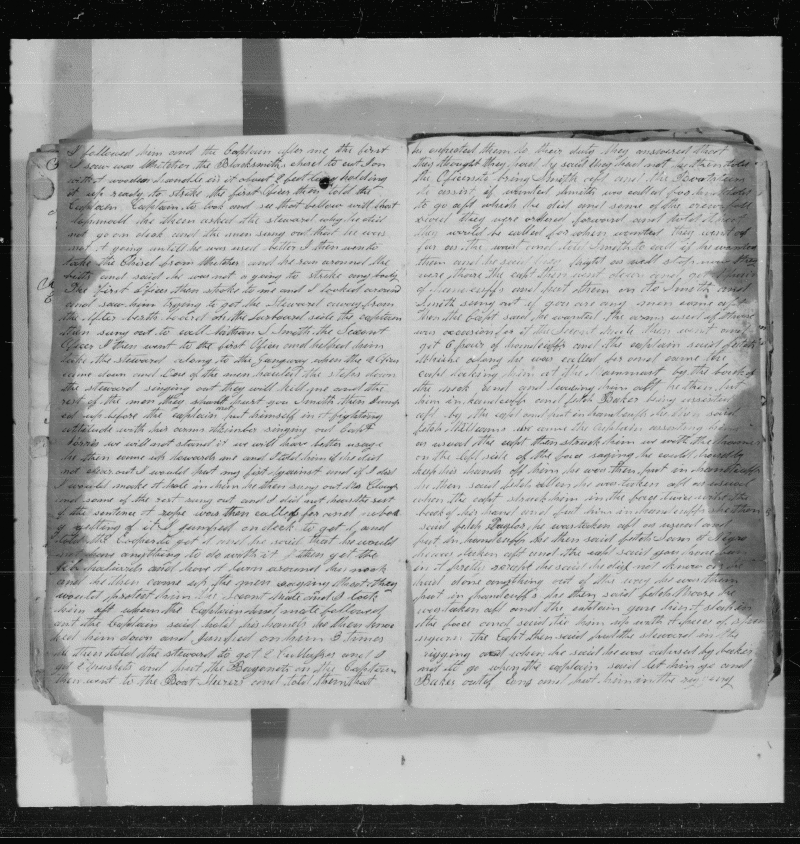 I followed him and the Captain after me the first
I saw was Whitcher the Blacksmiths chisel to cut Iron
with a wooden handle in it about 2 feet long holding
it up ready to strike the first officer then told the
Captain, Captain to look and see that fellow with that
he then asked the steward why he did
not go on deck and the men sung out that he was
not a going untill he was used better I then went to
take the Chisel from Whitcher and he saw around the
belts and said he was not a going to strike any body
The first officer then spoke to me and I looked around
and saw him trying to get the Steward away from
the After berth board on the larboard side the captain
then sung out to call William T Smith the Second
officer I then went to the first officer and helped him
take the steward along to the Gangway when the
came down and One of the men the steps down
the steward singing out they will kill me and the
rest of the men they should hurt you Smith then jumped
up before the captain and put himself in a fighting
attitude with his arms singing out Capt
Norris we will not stand it we will have better usage
he then came up towards me and I told him if he did
not clear out I would put my fist against and if I did
I would make a hole in him he then sung out
and some of the rest sung out and I did not hear the rest
of the sentence A rope was then called for and
getting of it I jumped on deck to get it and
told the Cooper to get it and he said that he would
not have anything to do with it I then got the
and hove it turn around his neck
and he then came up the men saying that they
would protect him the Second Mate and I took
him aft when the Captain and mate followed
and the Captain said hold his hands he then knoc
ked him down and jumped on him 3 times
he then told the steward to get 2 Cutlasses and I
got 2 muskets and put the Bayonets on the Captain
then went to the Boat Steerers and told them that
he expected them to their duty they answered that
they thought they had he said they had not he then told
the Officers to bring Smith aft and the Boatsteerers
to assist if wanted Smith was called for
to go aft which he did and some of the crew fol
lowed they were ordered forward and told that
they would be called for when wanted they went as
far as the waist and told Smith to call if he wanted
them and he said they might as well stop now they
were there the capt then went down and got 1 pair
of handcuffs and put them on to Smith and
Smith sung out if you are any men come aft
then the Capt said he wanted the arms used if there
was occasion for it the Second Mate then went and
got 6 pair of handcuffs and the captain said fetch
along he was called for and came the
capt taking him at the Mainmast by the back of
the neck and leading him aft he then put
him in handcuffs and fetch Baker being assisted
aft by the capt and put in handcuffs he then said
fetch Williams he came the Captain assisting him
as usual the capt then struck him us with the hammer
on the left side of the face saying he would hardly
keep his hands off him he was then put in handcuffs
he then said fetch allen he was taken aft as usual
when the capt struck him in the face twice with the
back of his hand and put him in handcuffs he then
said fetch Taylor, he was taken aft as usual and
put in handcuffs he then said fetch Sam A Negro
he was taken aft and the capt said you have
in it pretty he said he did not know as he
had done anything out of the way he was then
put in handcuffs he then said fetch Morse he
was taken aft and the captain gave him a slash in
the face and said tie him up with a piece of spun
yarn the Capt then said put the steward in the
rigging and when he said he was advised by baker
not to go when the captain said let him go and
Baker out of Irons and put him in the rigging